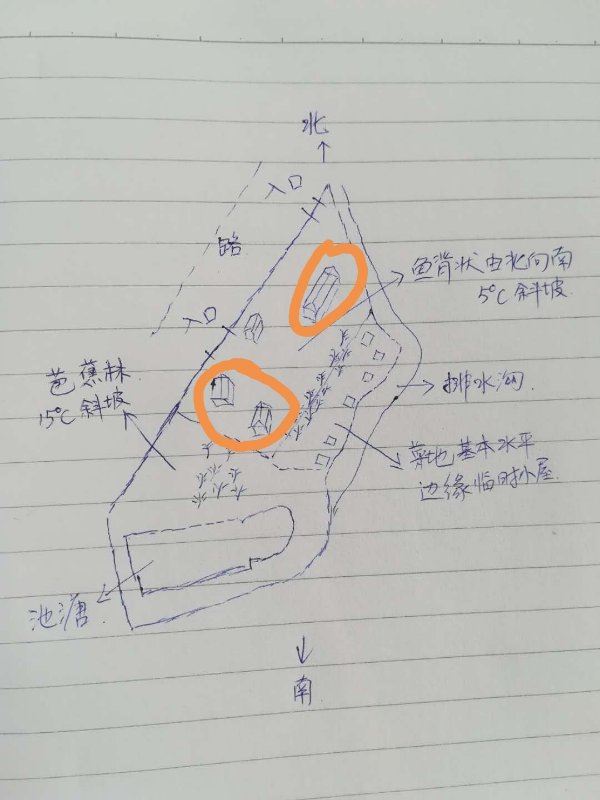 北
入口
路
鱼背状由北向南
5℃斜坡
入口
芭蕉林
15℃斜坡
排水沟
菜地基本水平
边缘临时小屋
池溏
南